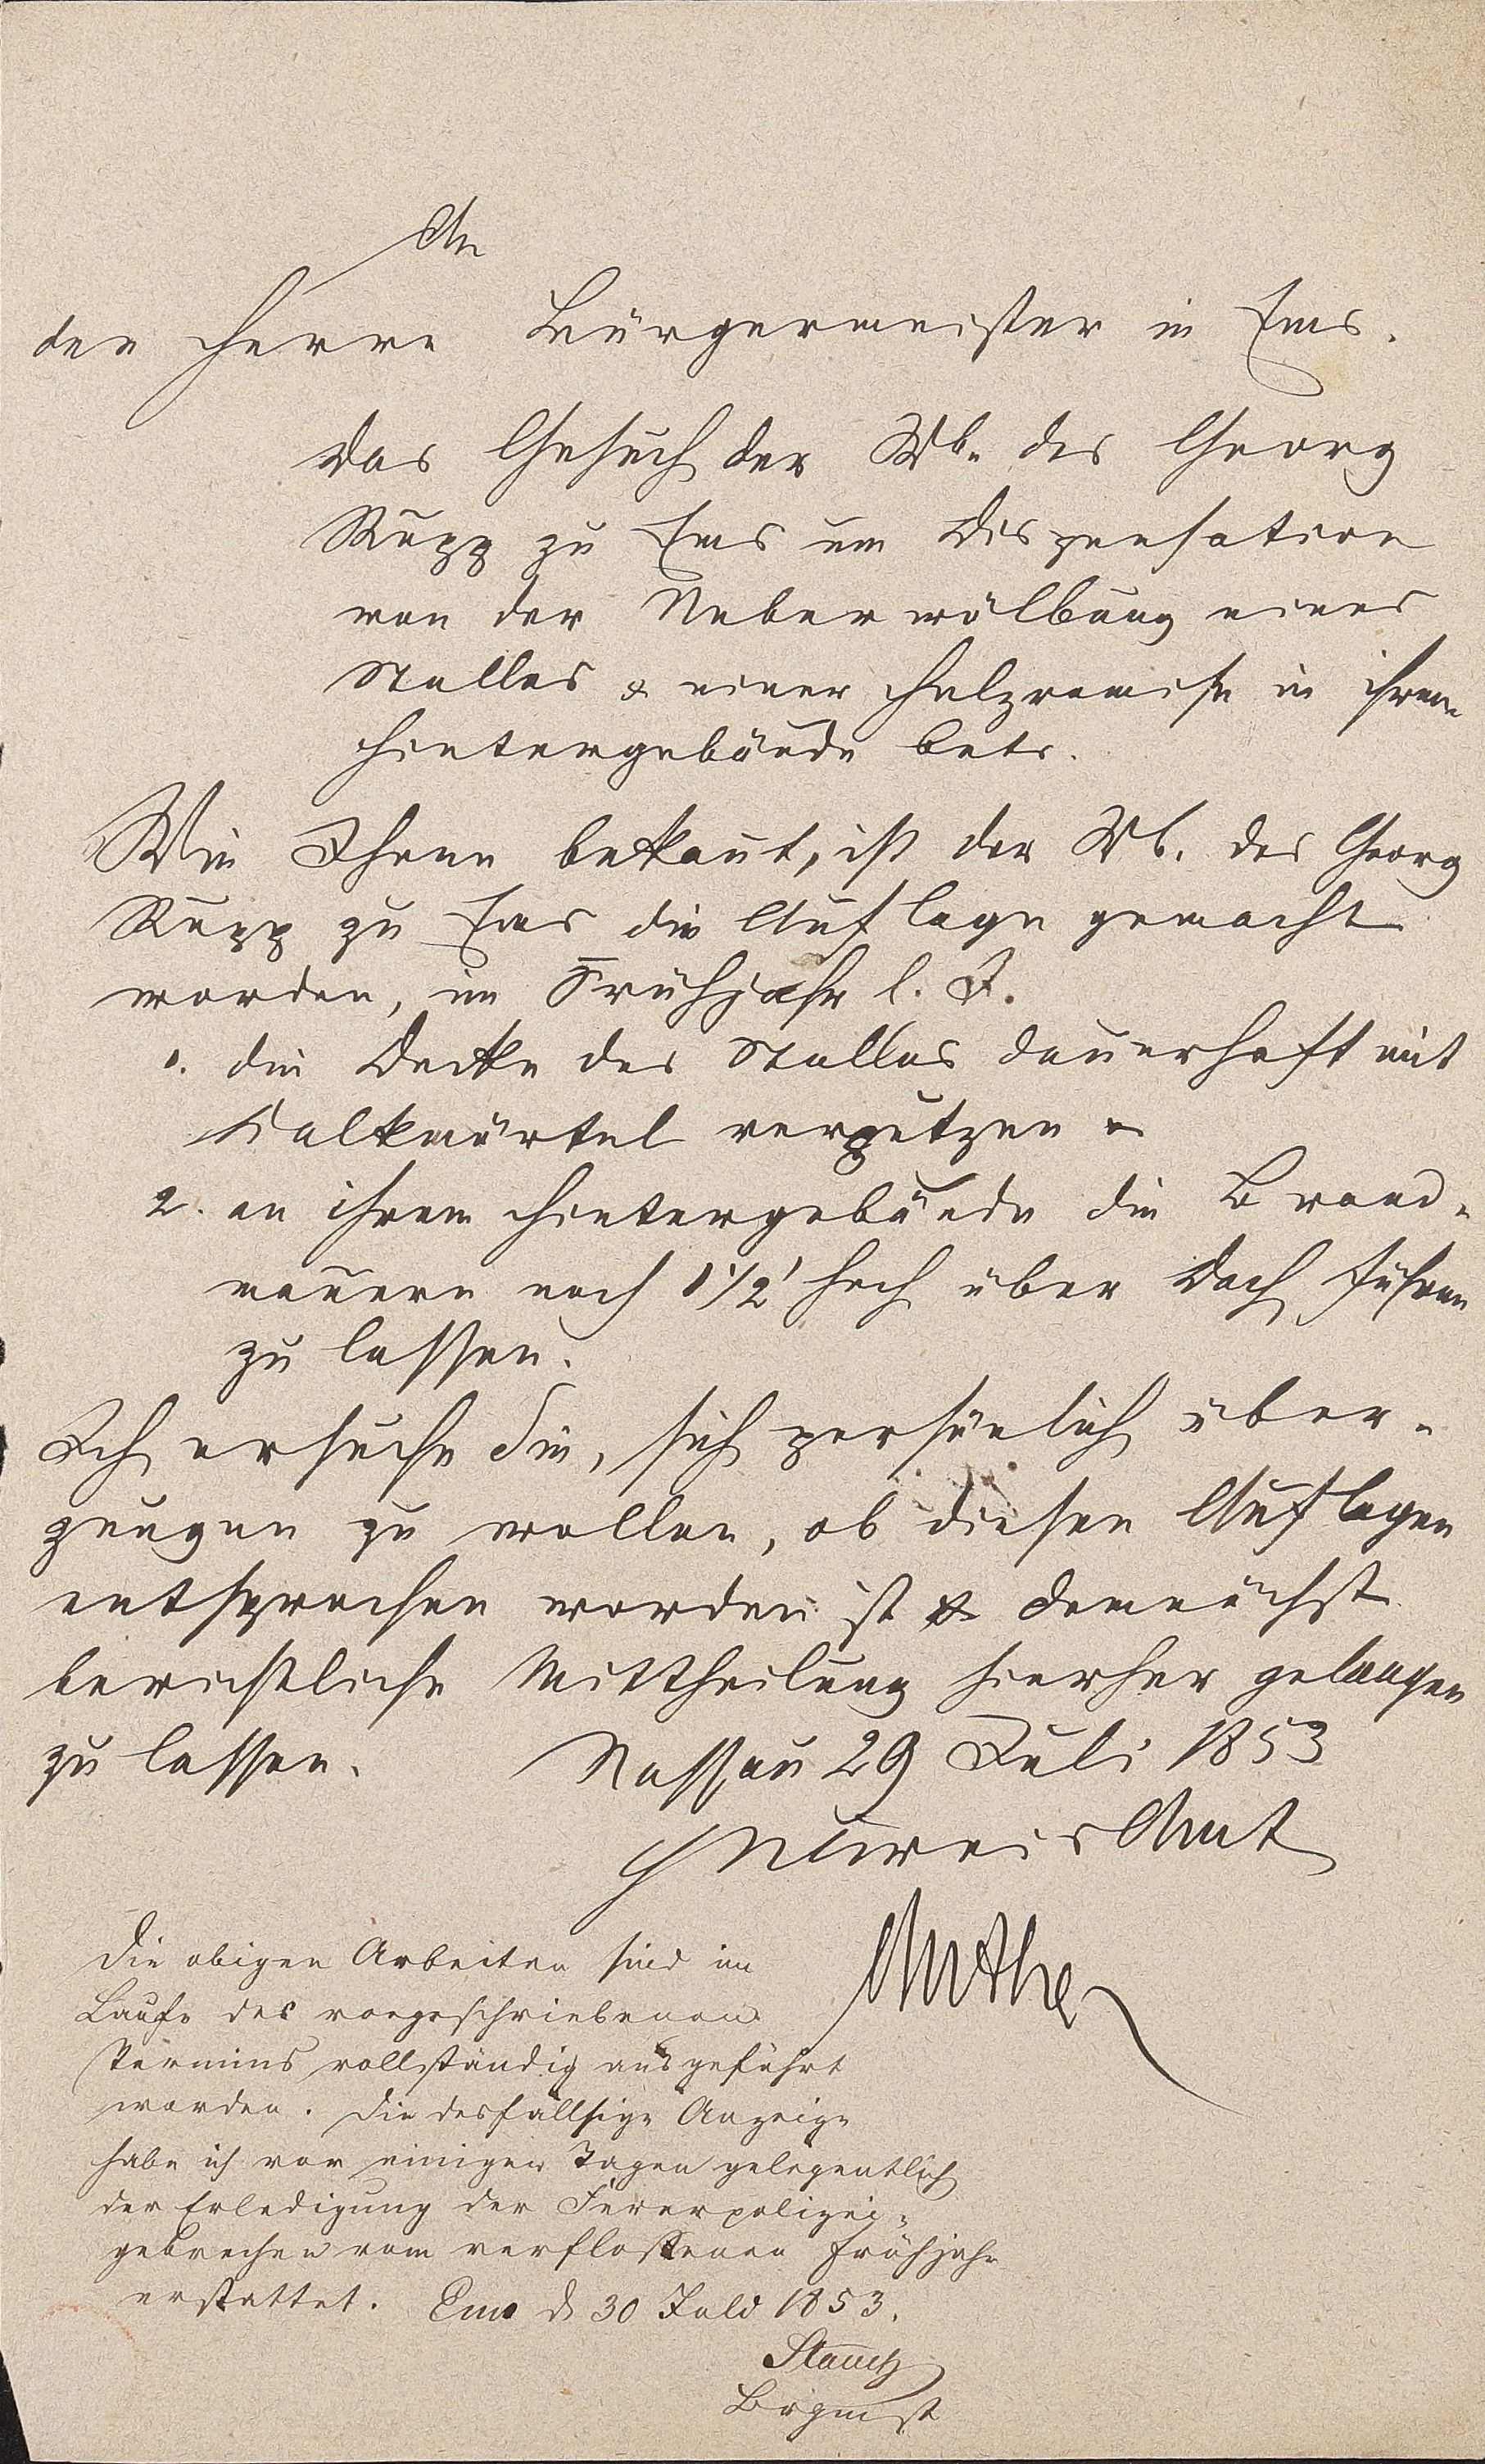 An
den Herrn Bürgermeister in Ems.
Das Gesuch der Wb. des Georg
Rupp zu Ems um Dispensation
von der Ueberwölbung eines
Stalles & einer Holzremise in ihrem
Hintergebäude betr.
Wie Ihnen bekannt, ist der Wb. des Georg
Rupp zu Ems die Auflage gemacht
worden, im Frühjahr l. J.
1. die Decke des Stalles dauerhaft mit
Kalkmörtel verputzen &
2. an ihrem Hintergebäude die Brand-
mauern noch 1 1/2' hoch über Dach führen
zu lassen.
Ich ersuche Sie, sich persönlich über-
zeugen zu wollen, ob diesen Auflagen
entsprochen worden ist & demnächst
berichtliche Mittheilung hierher gelangen
zu lassen. Nassau 29 Juli 1853
H N Kreis Amt
Die obigen Arbeiten sind im
Laufe des vorgeschriebenen
Termins vollständig ausgeführt
worden. Die desfallsige Anzeige
habe ich vor einigen Tagen gelegentlich
der Erledigung der Feuerpolizei-
gebrechen vom verflossenen Frühjahr
erstattet. Ems d 30 Juli 1853.
Bürgmst